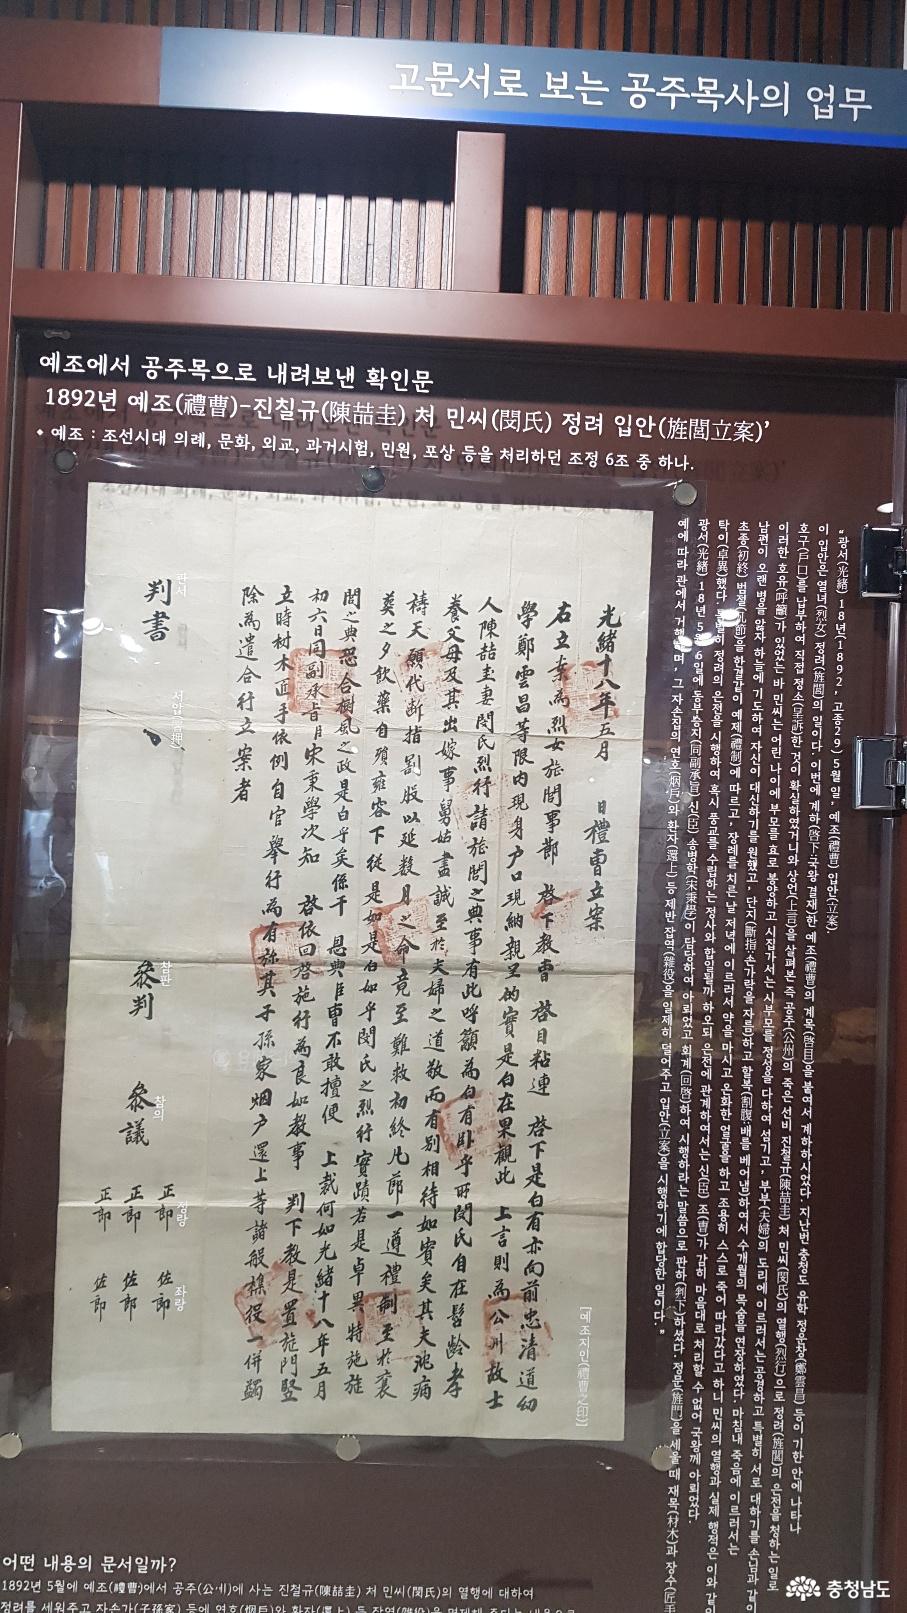 고문서로 보는 공주목사의 업무
예조에서 공주목으로 내려보낸 확인문
1892년 예조(禮曹)-진칠규(陳喆圭) 처 민씨(閔氏) 정려 입안(旌閭立案)’
• 예조 : 조선시대 의례, 문화, 외교, 과거시험, 민원, 포상 등을 처리하던 조정 6조 중 하나.
“광서(光緖) 18년(1892, 고종29) 5월 일, 예조(禮曹) 입안(立案).
이 입안은 열녀(烈女) 정려(旌閭)의 일이다. 이번에 계하(啓下:국왕 결재)한 예조(禮曹)의 계목(啓目)을 붙여서 계하하시었다. 지난번 충청도 유학 정운창(鄭雲昌) 등이 기한 안에 나타나
호구(戶口)를 납부하여 직접 정소(呈訴)한 것이 확실하였거니와 상언(上言)을 살펴본 즉 공주(公州)의 죽은 선비 진철규(陳喆圭) 처 민씨(閔氏)의 열행(烈行)으로 정려(旌閭)의 은전을 청하는 일로
이러한 호유(呼籲)가 있었는 바 민씨는 어린 나이에 부모를 효로 봉양하고 시집가서는 시부모를 정성을 다하여 섬기고, 부부(夫婦)의 도리에 이르러서는 공경하고 특별히 서로 대하기를 손님과 같이
남편이 오랜 병을 앓자 하늘에 기도하여 자신이 대신하기를 원했고, 단지(斷指:손가락을 자름)하고 할복(割腹:배를 베어냄)하여서 수개월의 목숨을 연장하였다. 마침내 죽음에 이르러서는
초종(初終) 범절(凡節)을 한결같이 예제(禮制)에 따르고, 장례를 치르는 날 저녁에 이르러서 약을 마시고 온화한 얼굴을 하고 조용히 스스로 죽어 따라갔다고 하니 민씨의 열행과 실제 행적은 이와 같이
탁이(卓異)했다. 특별히 정려의 은전을 시행하여 혹시 풍교를 수립하는 정사와 합일될까 하오되 은전에 관계하여서는 신(臣) 조(曹)가 감히 마음대로 처리할 수 없어 국왕께 아뢰었다.
광서(光緖) 18년 5월 6일에 동부승지(同副承旨) 신(臣) 송병학(宋秉學)이 담당하여 아뢰었고 회계(回啓)하여 시행하라는 말씀으로 판하(判下)하셨다. 정문(旌門)을 세울 때 재목(材木)과 장수(匠手)
예에 따라 관에서 거행하며, 그 자손집의 연호(烟戶)와 환자(還上) 등 제반 잡역(雜役)을 일제히 덜어주고 입안(立案)을 시행하기에 합당한 일이다.”
[예조지인(禮曹之印)]
光緖十八年五月 日禮曹立案
右立案爲烈女旌閭事節 啓下敎曹 啓目粘連 啓下是白有亦向前忠淸道幼
學鄭雲昌等限內現身戶口現納親呈的實是白在果觀此 上言則爲公州故士
人陳喆圭妻閔氏烈行請旌閭之典事有此呼籲爲白有臥乎所閔氏自在髫齡孝
養父母及其出嫁事舅姑盡誠至於夫婦之道敬而有別相待如賓矣其夫沈病
禱天願代斷指割股以延數月之命竟至難救初終凡節一遵禮制至於襄
葬之夕飮藥自殞雍容下從是如是白如乎閔氏之烈行實蹟若是卓異特施旌
閭之典恐合樹風之政是白乎矣係干 恩典臣曹不敢擅便 上裁何如光緖十八年五月
初六日同副承旨臣宋秉學次知 啓依回啓施行爲良如敎事 判下敎是置旌門竪
立時材木匠手依例自官擧行爲有旀其子孫家烟戶還上等諸般襍役一倂蠲
除爲遣合行立案者
判書 판서
서압(署押)
參判 참판
參議 참의
正郞 正郞 正郞 정랑
佐郞 佐郞 佐郞 좌랑
어떤 내용의 문서일까?
1892년 5월에 예조(禮曹)에서 공주(公州)에 사는 진철규(陳喆圭) 처 민씨(閔氏)의 열행에 대하여
정려를 세워주고 자손가(子孫家) 등에 연호(烟戶)와 환자(還上) 등 잡역(雜役)을
충청남도